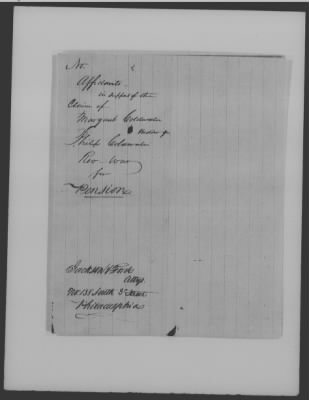 No.
Affidavits
in support of the
Claim of
Margaret Coldwater
Widow of
Philip Coldwater
Rev War
for
Pension
Attys.
No 135 South 3d Street
Philadelphia